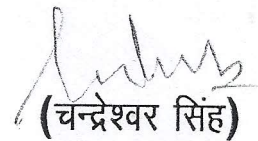 (चन्द्रेश्वर सिंह)